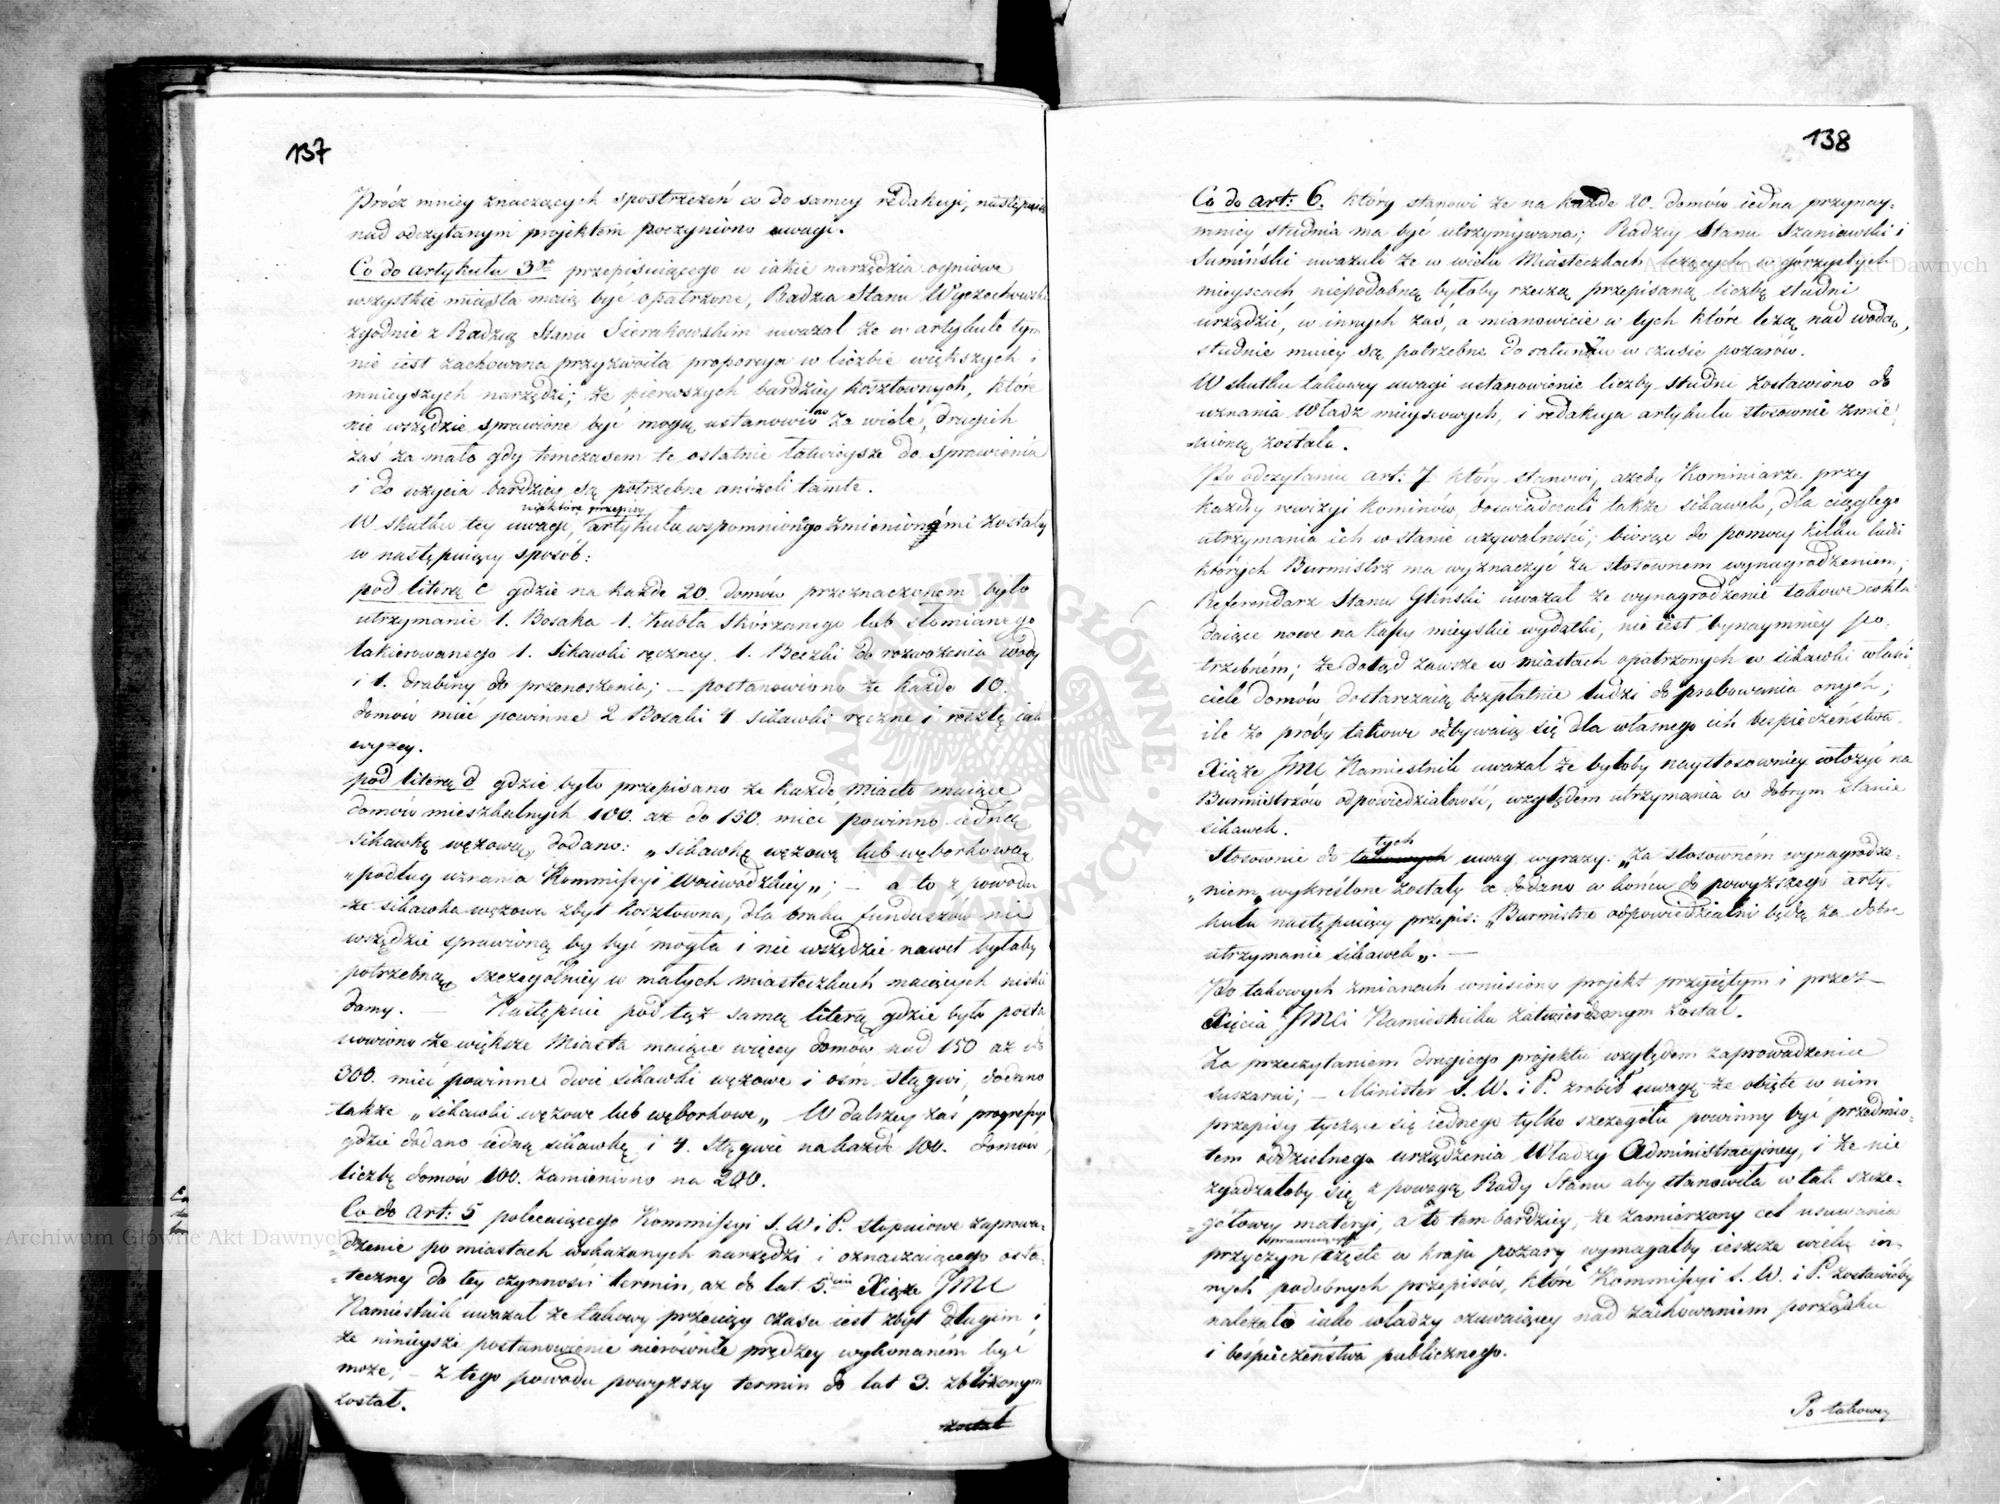 137
Prócz mniey znaczących spostrzeżeń co do samey redakcyi, następuiące
nad odczytanym projektem poczyniono uwagi.
Co do artykułu 3go przepisuiącego w iakie narzędzia ogniowe
wszystkie miasta maią być opatrzone, Radzca Stanu Wyczechowski
zgodnie z Radzcą Stanu Sierakowskim uważał że w artykule tym
nie iest zachowana przyzwoita proporcya w liczbie większych i
mnieyszych narzędzi; że pierwszych bardziey kosztownych, które
nie wszędzie sprawione być mogą ustanowiono za wiele, drugich
zaś za mało gdy tymczasem te ostatnie łatwieysze do sprawienia
i do użycia bardziey są potrzebne aniżeli tamte.
niektóre przepisy
W skutku tey uwagi, artykułu wspomnionego zmienionemi zostały
w następuiący sposób:
pod literą c gdzie na każde 20. domów przeznaczonem było
utrzymanie 1. Bosaka 1. Kubła Skórzanego lub słomianego
lakierowanego 1. Sikawki ręczney 1. Beczki do rozwożenia wody
i 1. drabiny do przenoszenia; – postanowiono że każde 10.
domów mieć powinne 2 Bosaki 4 sikawki ręczne i resztę iak
wyżey.
pod literą d gdzie było przepisano że każde Miasto maiące
domów mieszkalnych 100. aż do 150. mieć powinno iedną
sikawkę wężową, dodano: „sikawkę wężową lub węborkową
„podług uznania Kommissyi Woiewódzkiey"; – a to z powodu
że sikawka wężowa zbyt kosztowna, dla braku funduszów nie
wszędzie sprawioną by być mogła i nie wszędzie nawet byłaby
potrzebną, szczególniey w małych miasteczkach maiących niskie
domy. – Następnie pod tąż samą literą gdzie było posta
nowiono że większe Miasta maiące więcey domów nad 150 aż do
300. mieć powinne dwie sikawki wężowe i ośm stągwi, dodano
także „sikawki wężowe lub węborkowe„ W dalszey zaś progressyi
gdzie dodano iedną sikawkę i 4. Stągwie na każde 100. domów,
liczbę domów 100. zamieniono na 200.
Co do Art: 5 polecaiącego Kommissyi S. W i P. stopniowe zaprowa-
dzenie po miastach wskazanych narzędzi i oznaczaiącego osta-
teczny do tey czynności termin, aż do lat 5ciu Xiąże JMC
Namiestnik uważał że takowy przeciąg czasu iest zbyt długim i
że ninieysze postanowienie nierównie prędzey wykonaném być
może, – z tego powodu powyższy termin do lat 3. zbliżonym
został.
został
138
Co do art: 6. który stanowi że na każde 20. domów iedna przynay-
mniey studnia ma być utrzymywana; Radzcy Stanu Szaniawski i
Sumiński uważali że w wielu Miasteczkach leżących w górzystych
mieyscach niepodobną byłoby rzeczą przepisaną liczbę studni
urządzić, w innych zaś, a mianowicie w tych które leżą nad wodą,
studnie mniey są potrzebne do ratunku w czasie pożarów.
W skutku takowey uwagi ustanowienie liczby studni zostawiono do
uznania Władz mieyscowych, i redakcya artykułu stosownie zmie
nioną została.
Po odczytaniu art: 7 który stanowi, ażeby Kominiarze przy
każdey rewizyi kominów, doświadczali także sikawek, dla ciągłego
utrzymania ich w stanie używalności; biorąc do pomocy kilku ludzi
których Burmistrz ma wyznaczyć za stosownem wynagrodzeniem;
Referendarz Stanu Gliński uważał że wynagrodzenie takowe wkła
daiące nowe na kassy mieyskie wydatki, nie iest bynaymniey po-
trzebném; że dotąd zawsze w miastach opatrzonych w sikawki właści
ciele domów dostarczaią bezpłatnie ludzi do probowania onych;
ile że próby takowe odbywaią się dla własnego ich bespieczeństwa.
Xiąże JMC Namiestnik uważał że byłoby naystosowniey włożyć na
Burmistrzów odpowiedzialność, względem utrzymania w dobrym stanie
sikawek.
tych
Stosownie do takowych uwag wyrazy: „za stosowném wynagrodze-
„niem„ wykreślone zostały a dodano w końcu do powyższego arty-
kułu następuiący przepis: „Burmistrze odpowiedzialni będą za dobre
utrzymanie sikawek„. –
Po takowych zmianach wniesiony projekt przyiętym i przez
Xięcia JMCi Namiestnika zatwierdzonym został.
Za przeczytaniem drugiego projektu względem zaprowadzenia
suszarni; – Minister S. W. i P. zrobił uwagę że obięte w nim
przepisy tyczące się iednego tylko szczegółu powinny być przedmio-
tem oddzielnego urządzenia Władzy Administracyiney, i że nie
zgadzałoby się z powagą Rady Stanu aby stanowiła w tak szcze-
gółowey materyi, a to tem bardziey, że zamierzony cel usuwania
sprawuiących
przyczyn częste w kraju pożary wymagałby ieszcze wielu in-
nych podobnych przepisów, które Kommissyi S. W. i P. zostawićby
należało iako władzy czuwaiącey nad zachowaniem porządku
i bespieczeństwa publicznego.
Po takowey